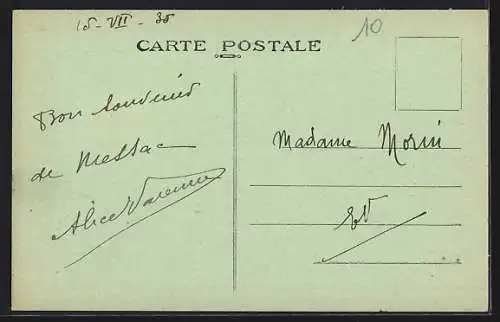 15 - VII - 35
10
CARTE POSTALE
Bon Souvenir
de Messac
Alice Varenne
Madame Morin
EV